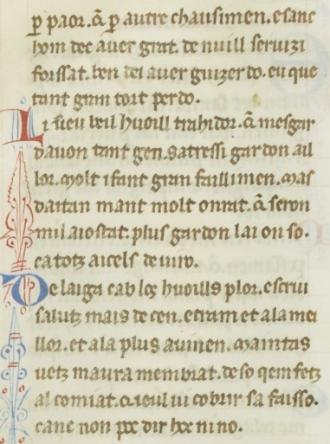 p paor. q̃ p autre chausimen. e sanc
hom dec auer grat. de nuill seruizi
forssat. ben dei auer guizerdo. eu que
tant gran tort perdo.
Li sieu beil huoill trahidor. q̃ mesgar
dauon tant gen. satressi gardon ail
lor. molt i fant gran faillimen. mas
daitan mant molt onrat. q̃ seron
mil aiostat. plus gardon lai on so.
ca totz aicels deuiro.
De laiga cab los huoills plor. escriu
salutz mais de cen. e tram et ala mei
llor. et ala plus auinen. maintas
uetz maura membrat. de so qem fetz
al comiat. q̃ ieul ui cobrir sa faisso.
canc non poc dir hoc ni no.